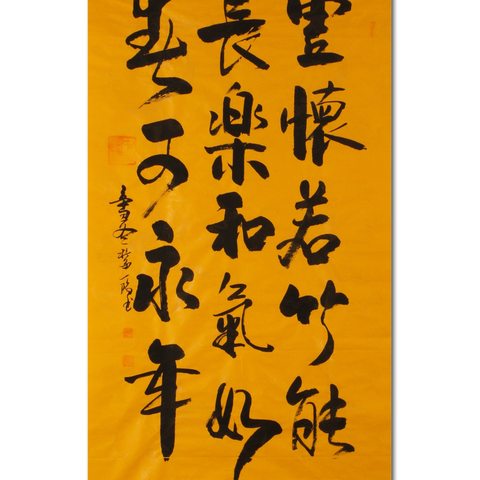 虛懷若竹能
長樂和氣如
春可永年